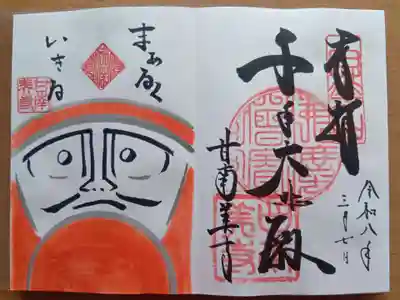 奉拝
千手大悲殿
甘南美寺
令和八年
三月七日
まあるく
いきる